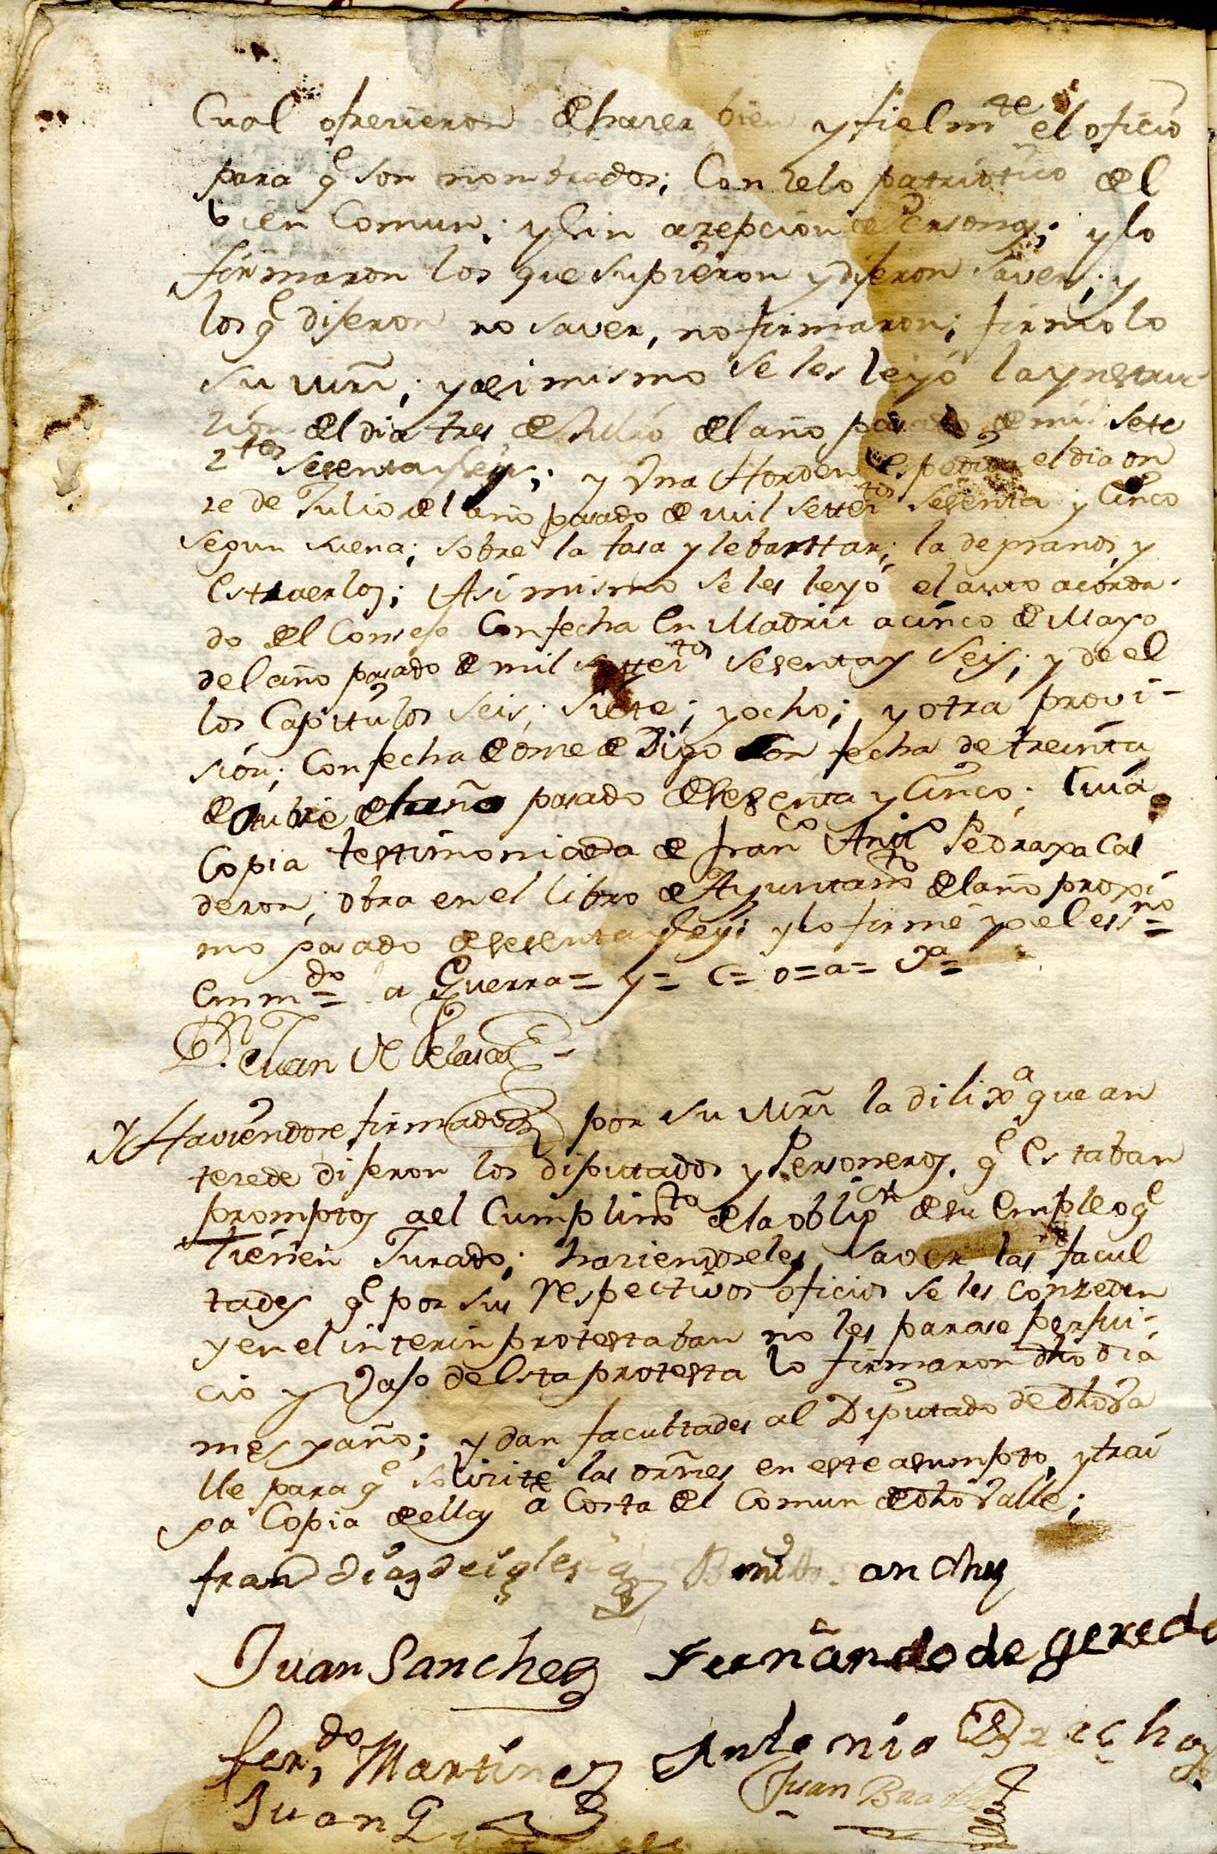 Cual ofrecieron de hacer bien y fielmte el oficio
para q son nombrados; Con zelo patriotico del
bien Comun; y sin azepcion de Personas; y lo
firmaron los que supieron y dijeron saver; y
los q dijeron no saver, no firmaron; firmolo
su mrd; y asimismo se les leyó la ynstruc
zion del dia tres de Julio del año pasado de mil sete
ztos sesenta y seis; y Una Horden espedida el dia on
ze de Julio del año pasado de mil setteztos sesenta y Cinco
segun suena; sobre la tasa y lebanttar; la de granos y
estraerlos; Asimismo se les leyo el auto acorda
do del Consejo Con fecha en Madrid a cinco de Mayo
del año pasado de mil settezttos sesenta y Seis; y de el
los Capittulos seis; siete; y ocho; y otra provi-
sion; Con fecha de onze de Digo Con fecha de treinta
de Octubre del año pasado de sesenta y Cinco; Cuia
Copia testtimoniada de Franco Anto Pedraxa Cal
deron; obra en el libro de Ayuntamto del año proxi
mo pasado de sesenta y seis y lo firmé yo el essno=
Emmdo= a Guerra= y= C= o=a=
Dn Juan de Velasco
Y Haviendose firmado por su Mrd la dilixa que an
tezede dijeron los diputados y Personeros, q Estaban
promptos a el Cumplimto de la obligon de su Empleo q
tienen Jurado; haziendoseles saver las facul
tades q por sus respectivos oficios se les conzeden
y en el interin protestaban no les parase perjui-
cio y Vajo de esta protesta lo firmaron dho dia
mes y año; y dan facultades al Diputado de dho Va
lle para q solizite las ornes en este asumpto, y trai
ga Copia de ellas a Costa del Comun de dho Valle;
fran diaz de iglesia Benito Sanchez
Juan Sanchez Fernando de gerede
Ferndo Martinez Antonio
Juan G Juan